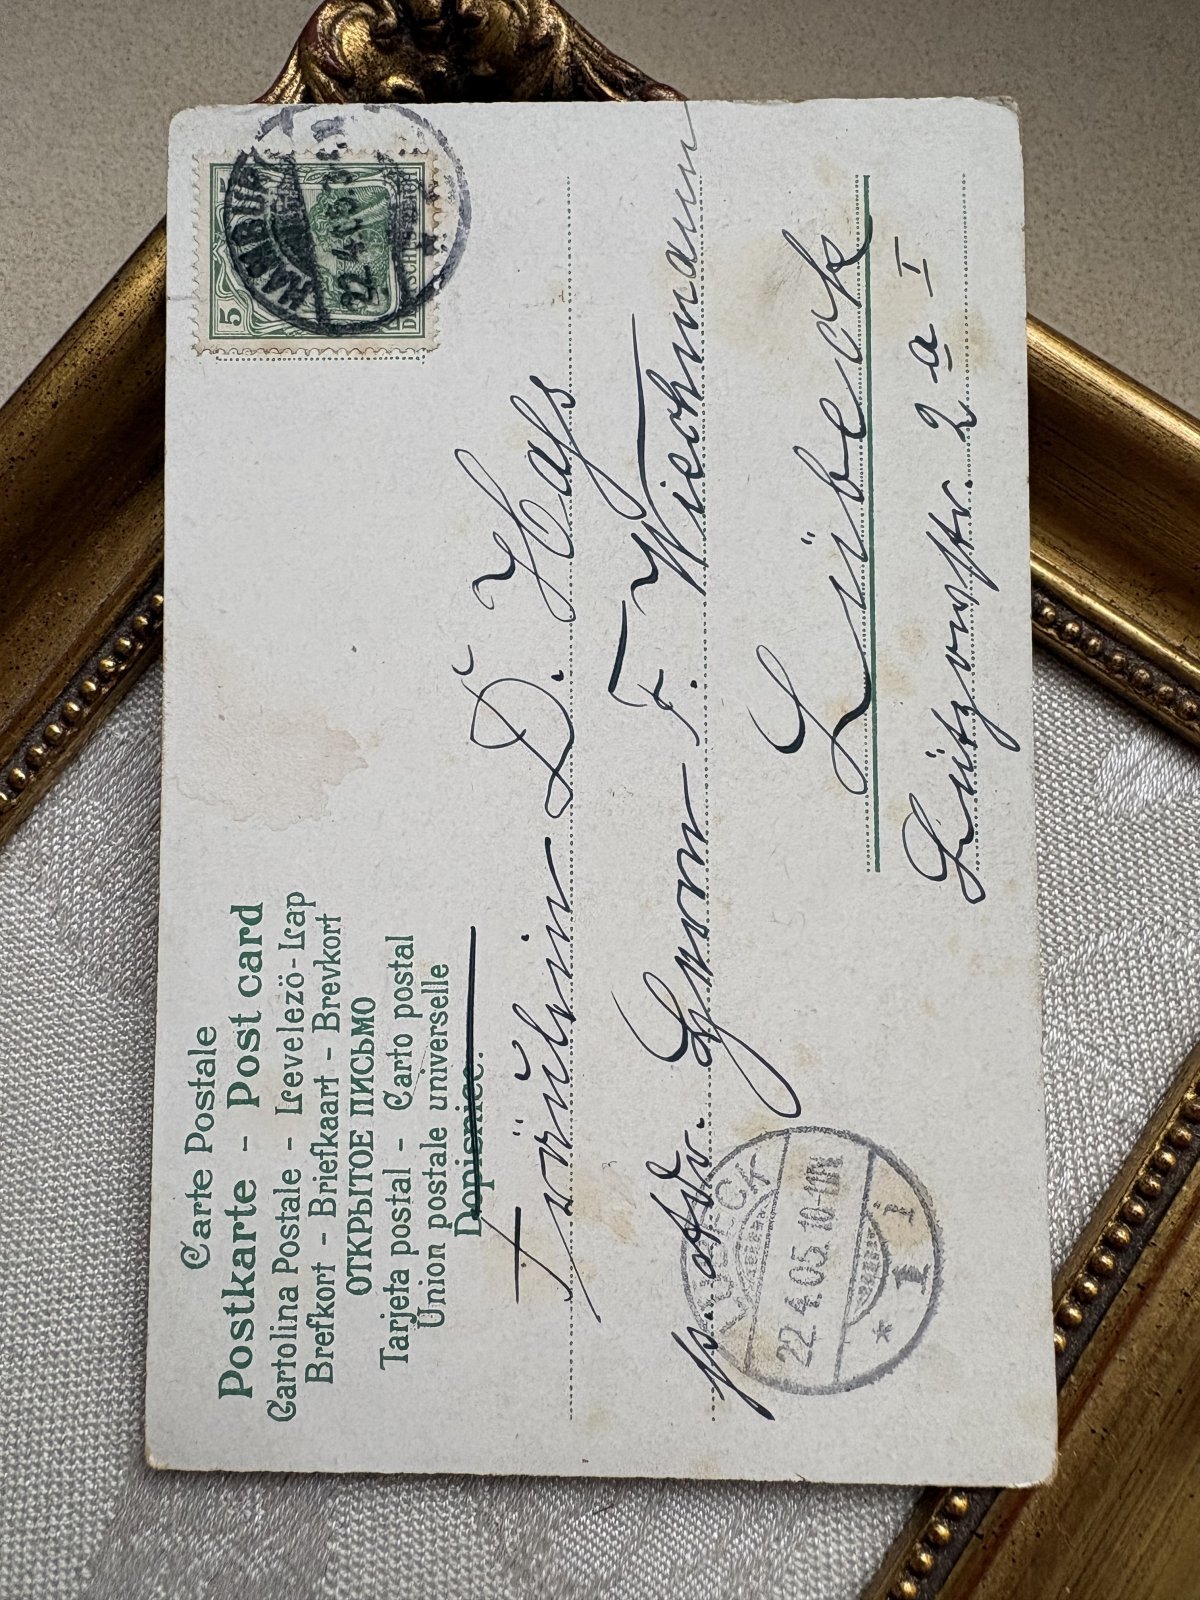 Carte Postale
Postkarte - Post card
Cartolina Postale - Levelező-Lap
Brefkort - Briefkaart - Brevkort
ОТКРЫТОЕ ПИСЬМО
Tarjeta postal - Carto postal
Union postale universelle
Dopisnice.
5
HAMBURG
22.4.05.
DEUTSCHES REICH
Fräulein D. Hass
p. Adr. Herrn F. Wiechmann
Lübeck
Lützowstr. 2 a I
LÜBECK
22.4.05.10-11N
* 1 i